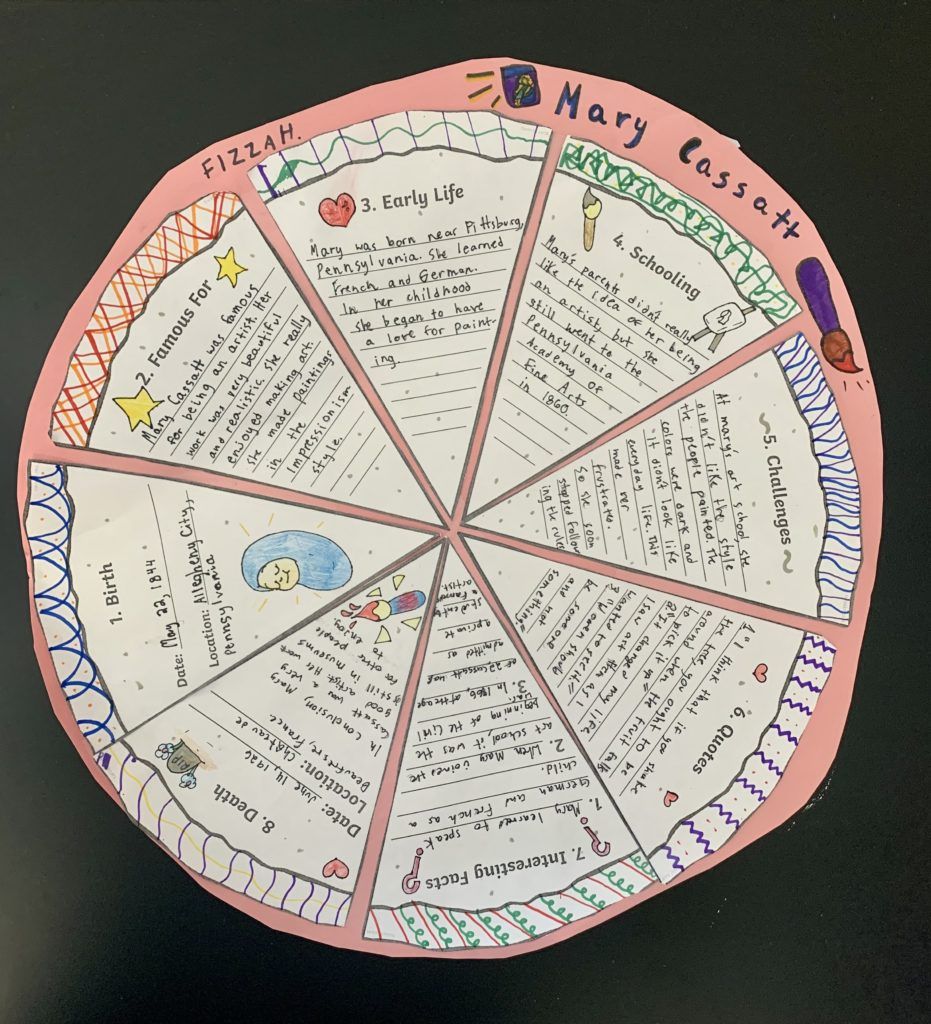 FIZZAH.
Mary Cassatt
1. Birth
Date: May 22, 1844
Location: Allegheny City,
Pennsylvania
2. Famous For
Mary Cassatt was famous
for being an artist. Her
work was very beautiful
and realistic, she really
enjoyed making art.
She made paintings
in the
Impressionism
style.
3. Early Life
Mary was born near Pittsburg,
Pennsylvania. She learned
French and German.
In her childhood
she began to have
a love for paint-
ing.
4. Schooling
Mary's parents didn't really
like the idea of her being
an artist, but she
still went to the
Pennsylvania
Academy of
Fine Arts
in 1860.
5. Challenges
At mary's art school she
didn't like the style
the people painted. The
colors were dark and
it didn't look like
everyday life. This
made her
frustrated.
So she soon
stopped follow
ing the rules
6. Quotes
1." I think that if you shake
the tree, you ought to be
around when the fruit falls
to pick it up"
2. "It changed my life
I saw art then as I
wanted to see it."
3. "Women should
be someone
and not
something"
7. Interesting Facts
1. Mary learned to speak
German and French as a
child.
2. When Mary joined the
art school, it was the
beginning of the Civil
war.
3. In 1866, at the age
of 22 cassatt was
admitted as
a private
student to
a famous
artist.
8. Death
RIP
Date: June 14, 1926
Location: Château de
Beaufresne France
In conclusion, Mary
Cassatt was a very
good artist. Her work
is still in museums
for
other people
to
enjoy.